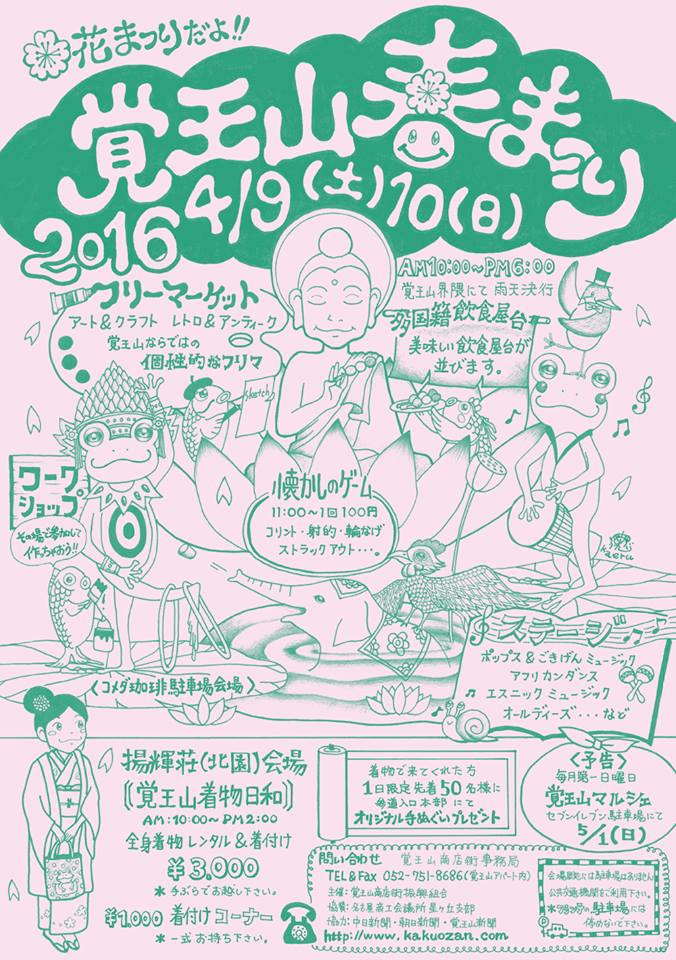 花まつりだよ!!
覚王山春まつり
2016 4/9(土)10(日)
AM10:00~PM6:00
覚王山界隈にて 雨天決行
フリーマーケット
アート&クラフト レトロ&アンティーク
覚王山ならではの
個性的なフリマ
多国籍飲食屋台
美味しい飲食屋台が
並びます。
Sketch
ワーク
ショップ
その場で参加して
作っちゃおう!!
懐かしのゲーム
11:00~1回100円
コリント・射的・輪なげ
ストラックアウト・・・。
ステージ
ポップス&ごきげんミュージック
アフリカンダンス
エスニックミュージック
オールディーズ・・・など
〈コメダ珈琲駐車場会場〉
揚輝荘(北園)会場
〔覚王山着物日和〕
AM:10:00~PM2:00
全身着物レンタル&着付け
¥3,000
*手ぶらでお越し下さい。
¥1,000 着付けコーナー
*一式お持ち下さい。
着物で来てくれた方
1日限定先着50名様に
参道入口本部にて
オリジナル手ぬぐいプレゼント
〈予告〉
毎月第一日曜日
覚王山マルシェ
セブンイレブン駐車場にて
5/1(日)
問い合わせ 覚王山商店街事務局
TEL&Fax 052-751-8686(覚王山アパート内)
主催:覚王山商店街振興組合
協賛:名古屋商工会議所星ヶ丘支部
協力:中日新聞・朝日新聞・覚王山新聞
http://www.kakuozan.com
会場周辺には駐車場はありません
公共交通機関をご利用下さい。
の駐車場には
停めないで下さい。